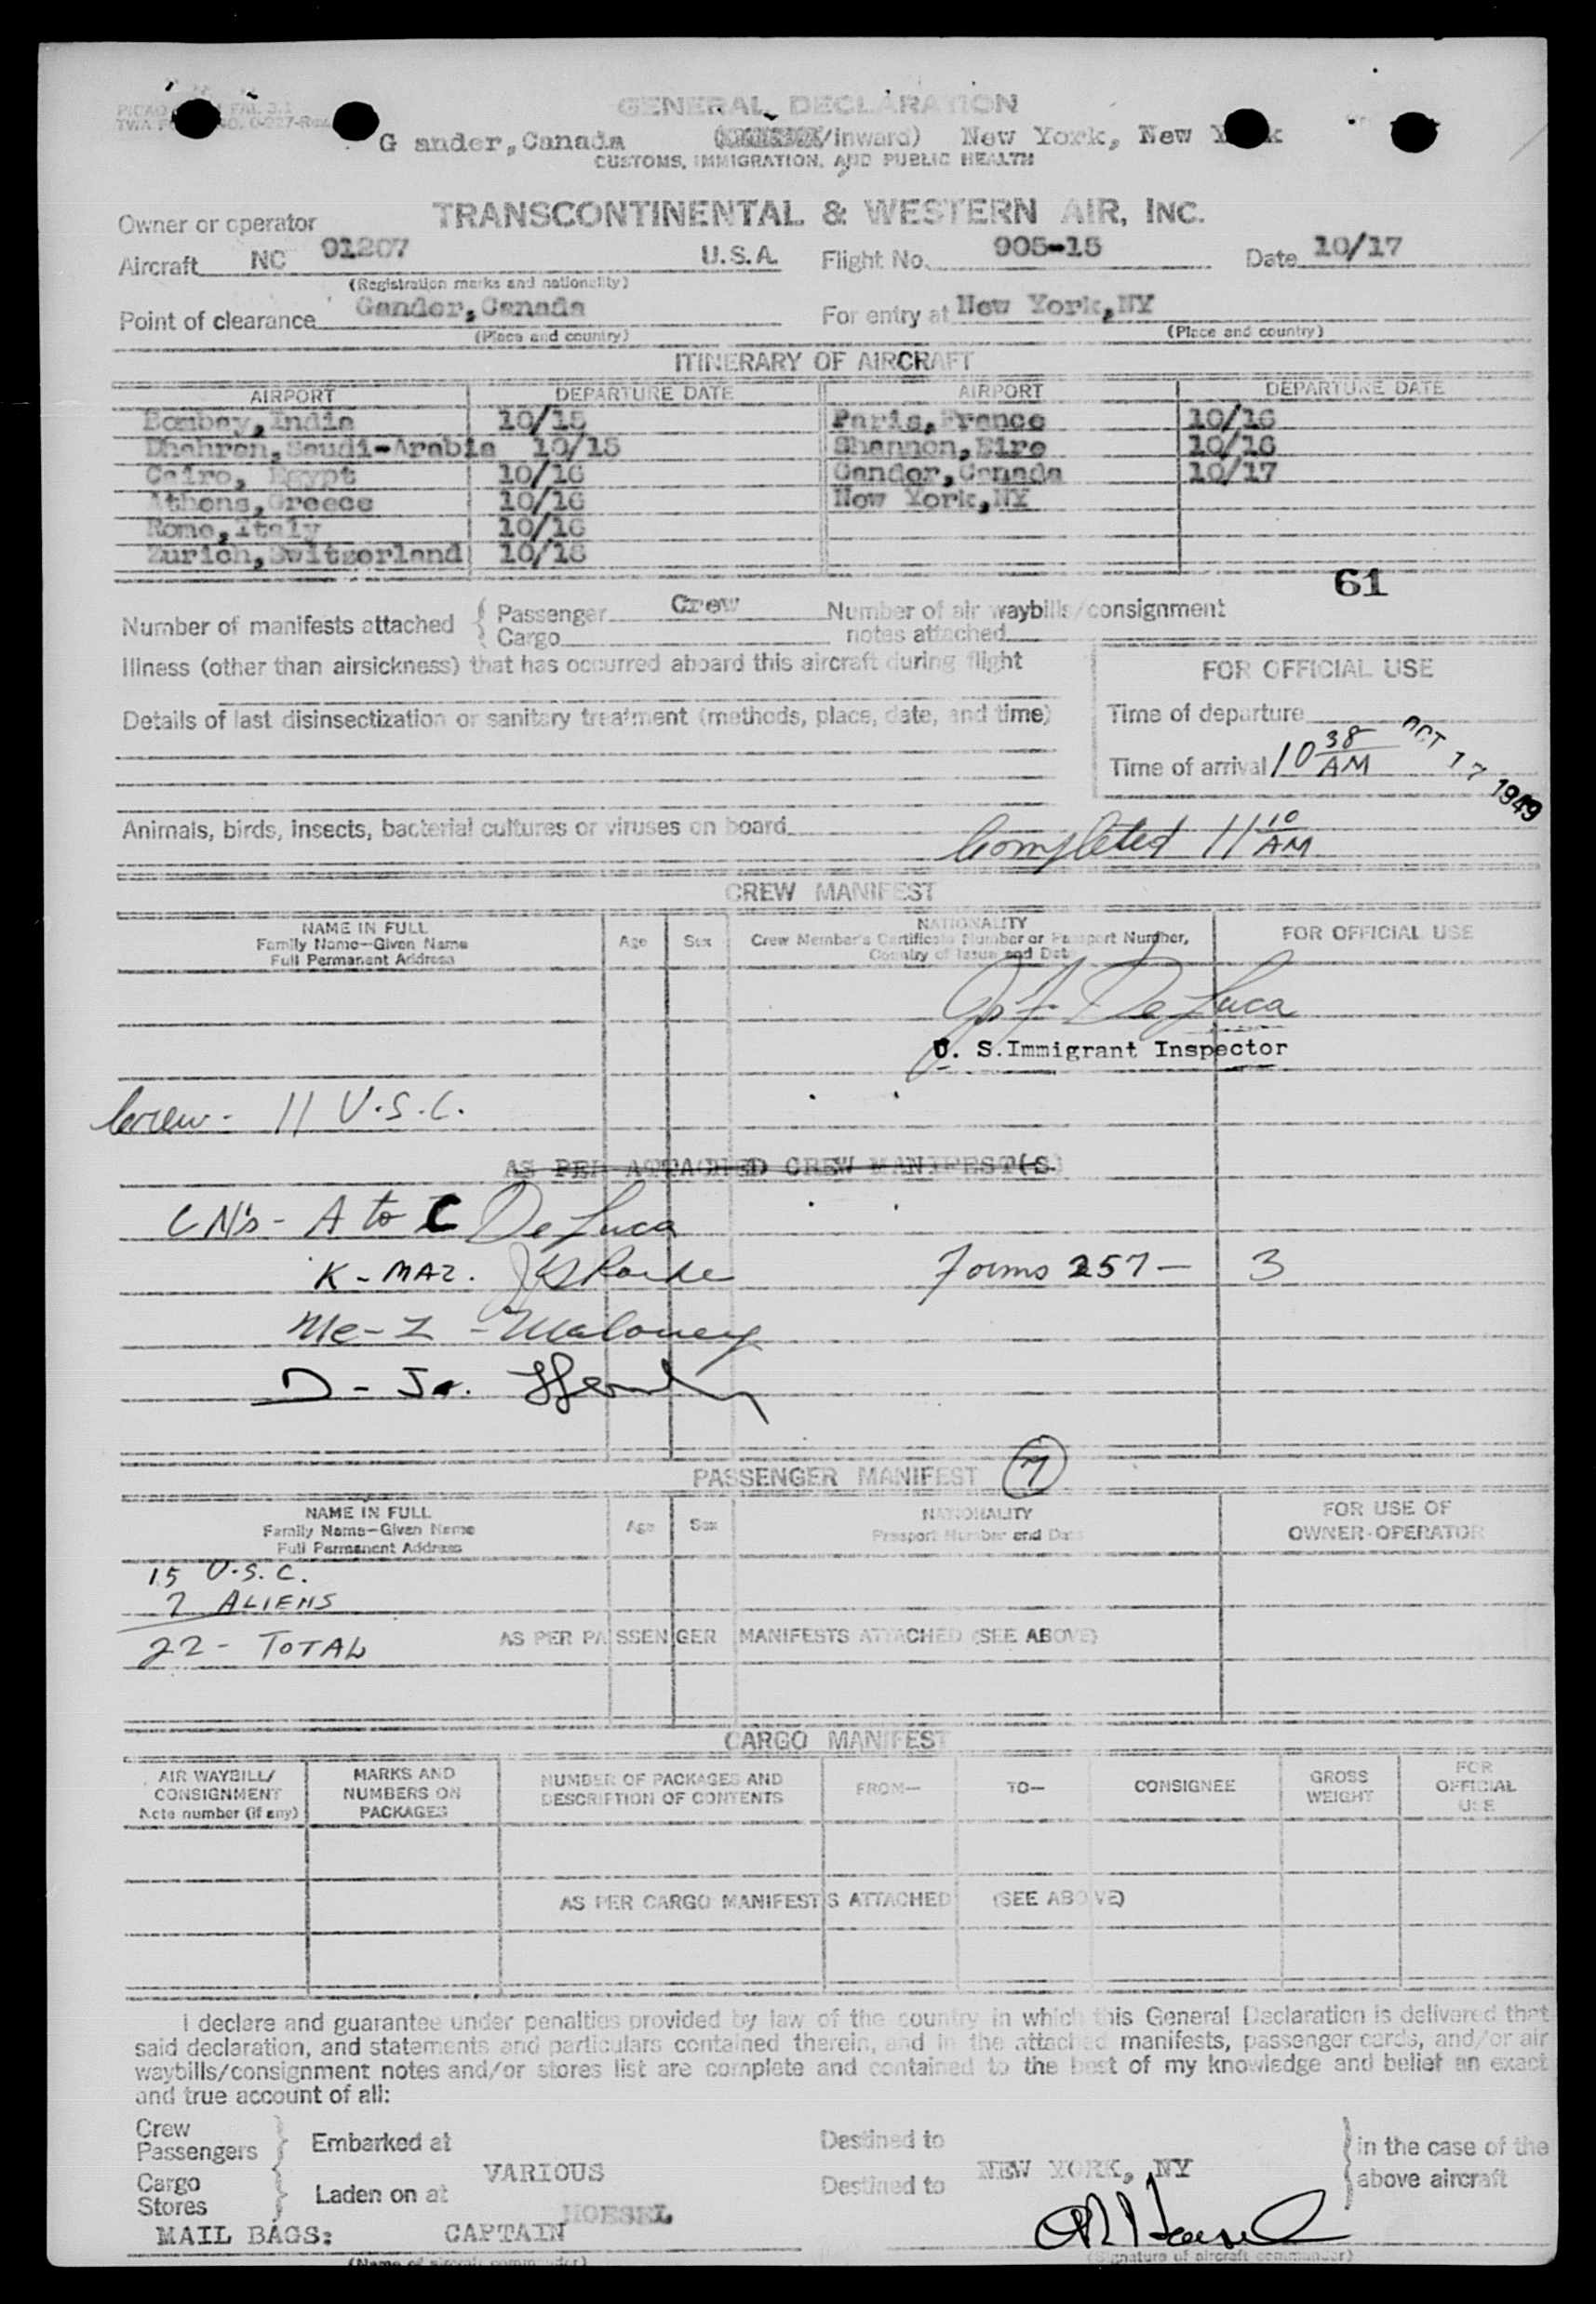 GENERAL DECLARATION
G ander,Canada /Inward) New York, New
CUSTOMS, IMMIGRATION, AND PUBLIC HEALTH
Owner or operator TRANSCONTINENTAL & WESTERN AIR, INC.
Aircraft NC 91207 U.S.A. Flight No. 905-15 Date 10/17
(Registration marks and nationality)
Point of clearance Gander,Canada For entry at New York,NY
(Place and country) (Place and country)
ITINERARY OF AIRCRAFT
AIRPORT DEPARTURE DATE AIRPORT DEPARTURE DATE
Bombay,India 10/15 Paris,France 10/16
Dhahran,Saudi-Arabia 10/15 Shannon,Eire 10/16
Cairo, Egypt 10/16 Gander,Canada 10/17
Athens,Greece 10/16 New York,NY
Rome,Italy 10/16
Zurich,Switzerland 10/16
61
Number of manifests attached { Passenger Crew Number of air waybills/consignment
Cargo notes attached
Illness (other than airsickness) that has occurred aboard this aircraft during flight
FOR OFFICIAL USE
Details of last disinsectization or sanitary treatment (methods, place, date, and time)
Time of departure
Time of arrival 10 38 AM OCT 17 1949
Animals, birds, insects, bacterial cultures or viruses on board
Completed 11 10 AM
CREW MANIFEST
NAME IN FULL Age Sex NATIONALITY FOR OFFICIAL USE
Family Name—Given Name Crew Member's Certificate Number or Passport Number,
Full Permanent Address Country of Issue and Date
De Luca
U. S.Immigrant Inspector
Crew - 11 U.S.C.
AS PER ATTACHED CREW MANIFEST(S)
CN's - A to C De Luca
K - MAZ. Forms 257 - 3
Me - Z - Maloney
D - Jo.
PASSENGER MANIFEST 7
NAME IN FULL Age Sex NATIONALITY FOR USE OF
Family Name—Given Name Passport Number and Date OWNER-OPERATOR
Full Permanent Address
15 U.S.C.
7 ALIENS
22 - TOTAL AS PER PASSENGER MANIFESTS ATTACHED (SEE ABOVE)
CARGO MANIFEST
AIR WAYBILL/ CONSIGNMENT Note number (if any) MARKS AND NUMBERS ON PACKAGES NUMBER OF PACKAGES AND DESCRIPTION OF CONTENTS FROM— TO— CONSIGNEE GROSS WEIGHT FOR OFFICIAL USE
AS PER CARGO MANIFESTS ATTACHED (SEE ABOVE)
I declare and guarantee under penalties provided by law of the country in which this General Declaration is delivered that
said declaration, and statements and particulars contained therein, and in the attached manifests, passenger cards, and/or air
waybills/consignment notes and/or stores list are complete and contained to the best of my knowledge and belief an exact
and true account of all:
Crew
Passengers } Embarked at Destined to } in the case of the
VARIOUS NEW YORK, NY
Cargo
Stores } Laden on at Destined to above aircraft
HOESEL
MAIL BAGS: CAPTAIN
(Name of aircraft commander) (Signature of aircraft commander)